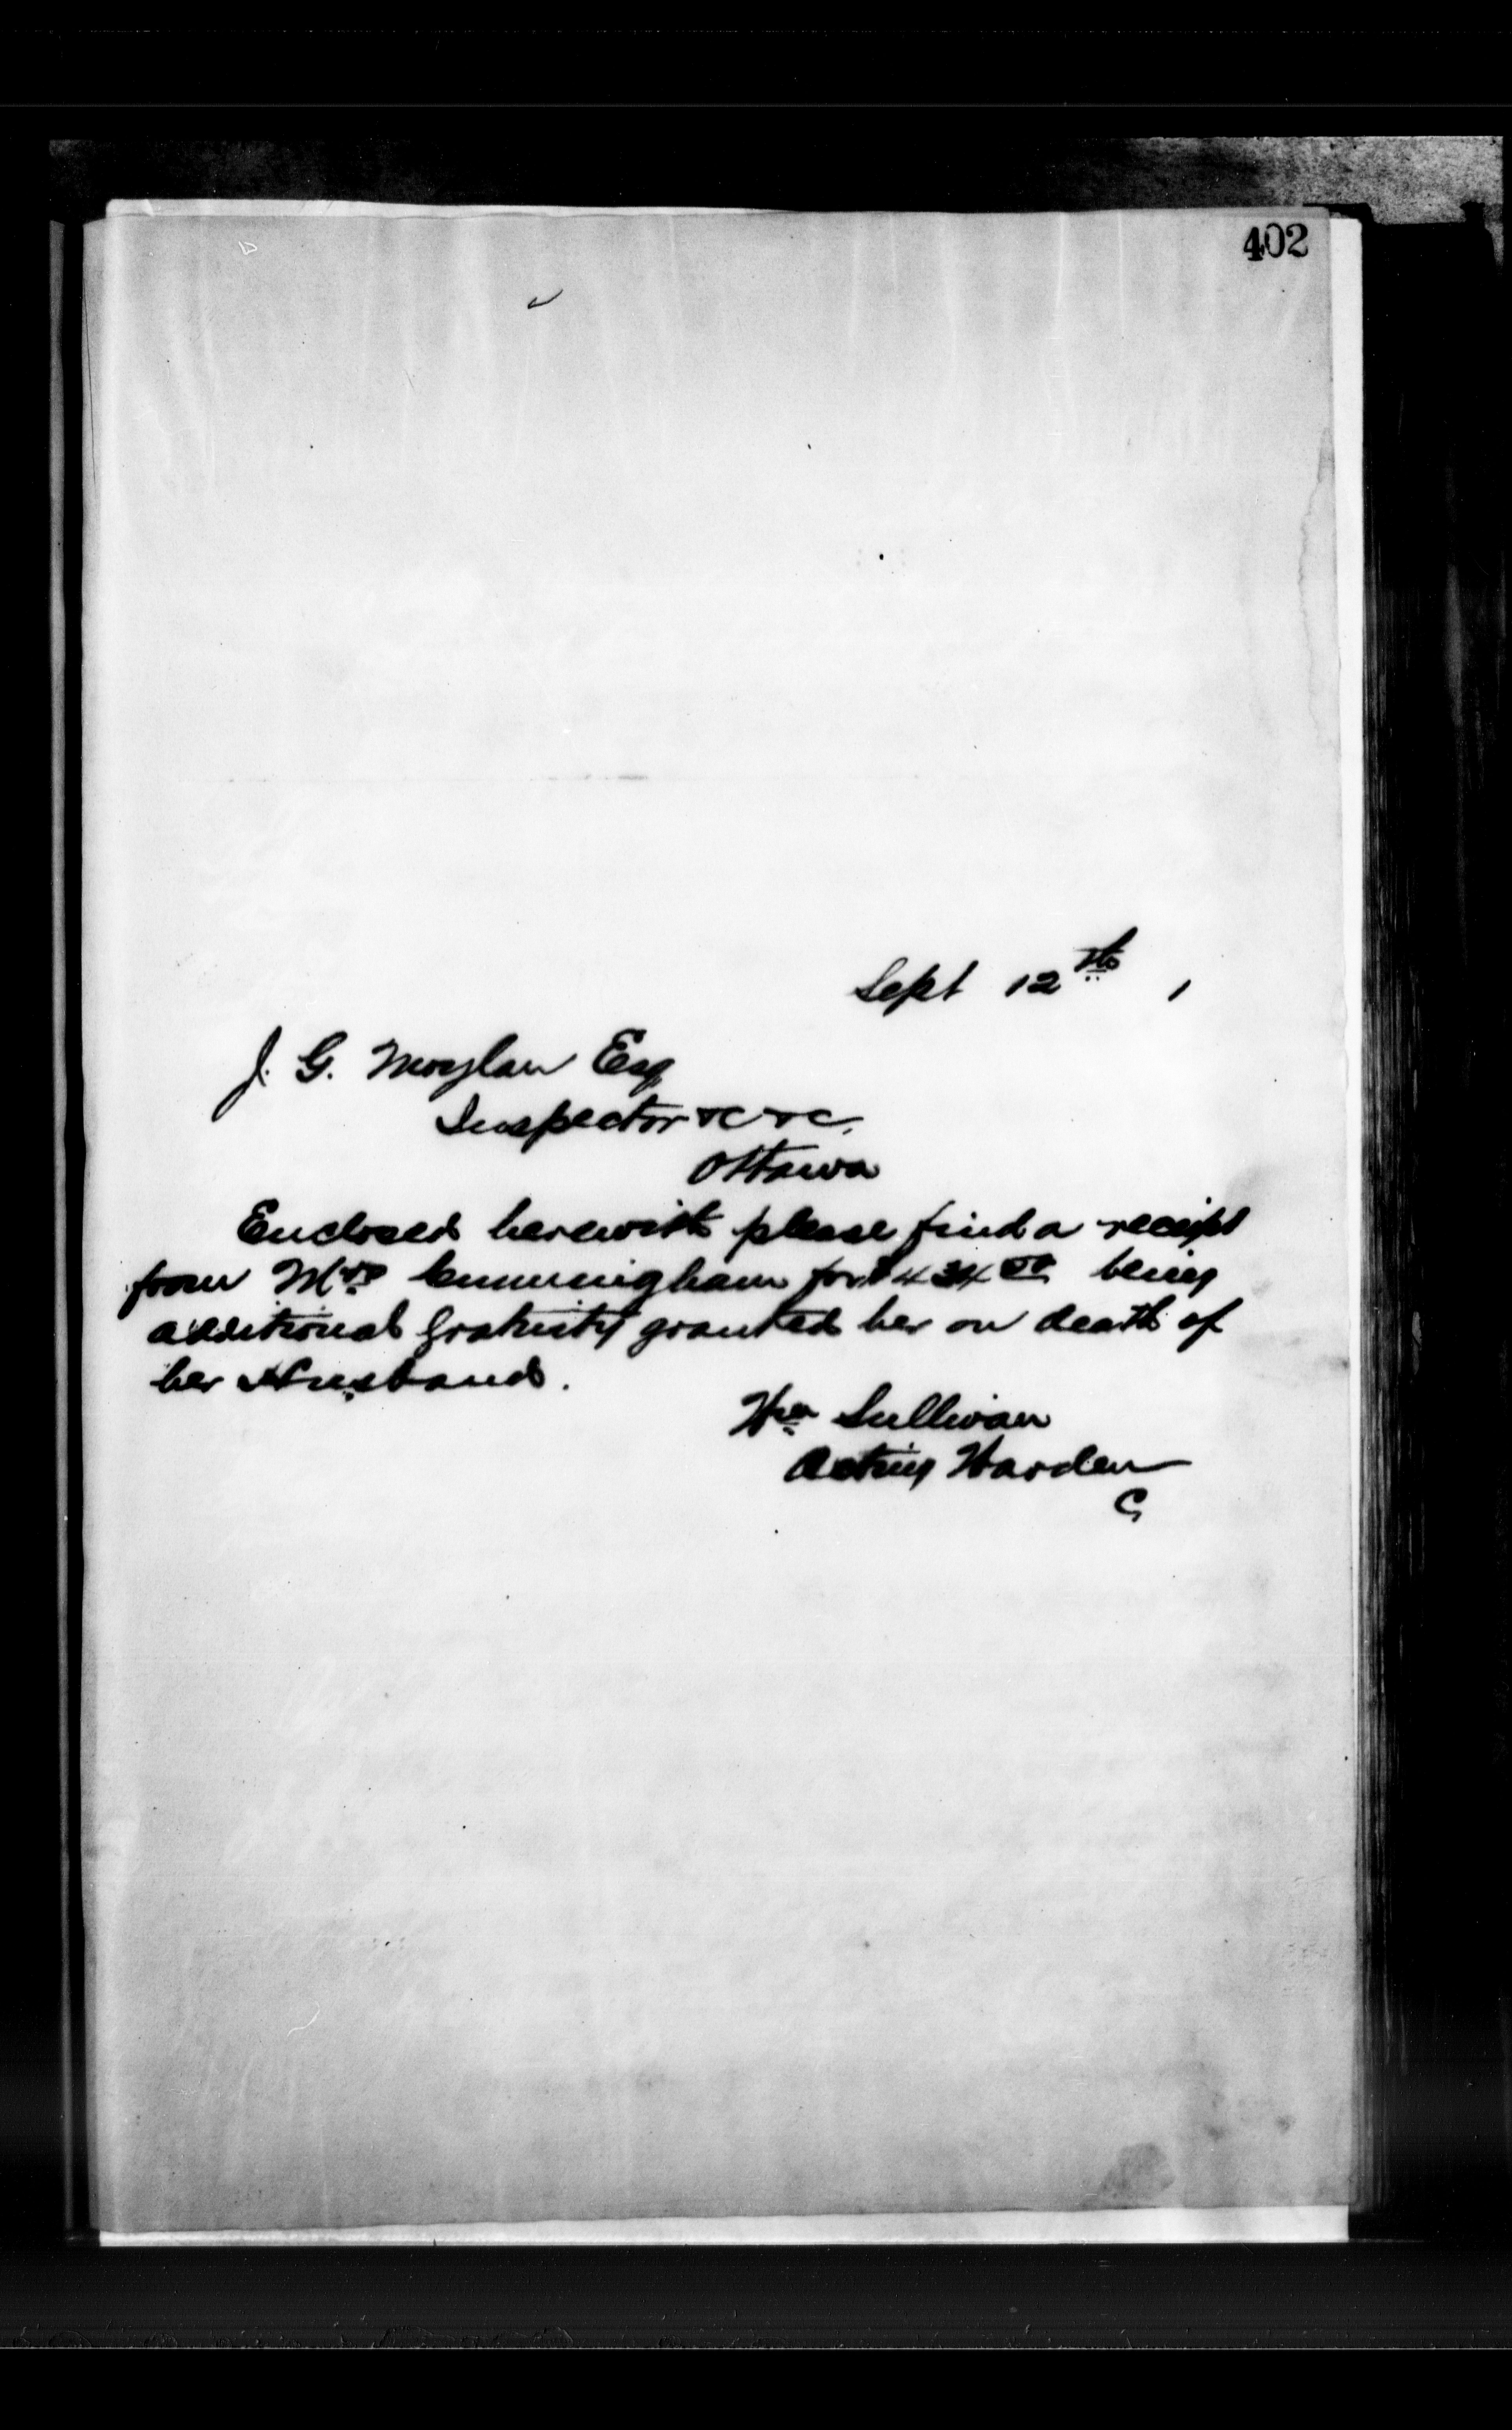 402
Sept 12th 1
J. G. Moylan Esq
Inspector &c &c.
Ottawa
Enclosed herewith please find a receipt
from Mrs Cunningham for $434 being
additional Gratuity granted her on death of
her Husband.
Wm Sullivan
Acting Warden